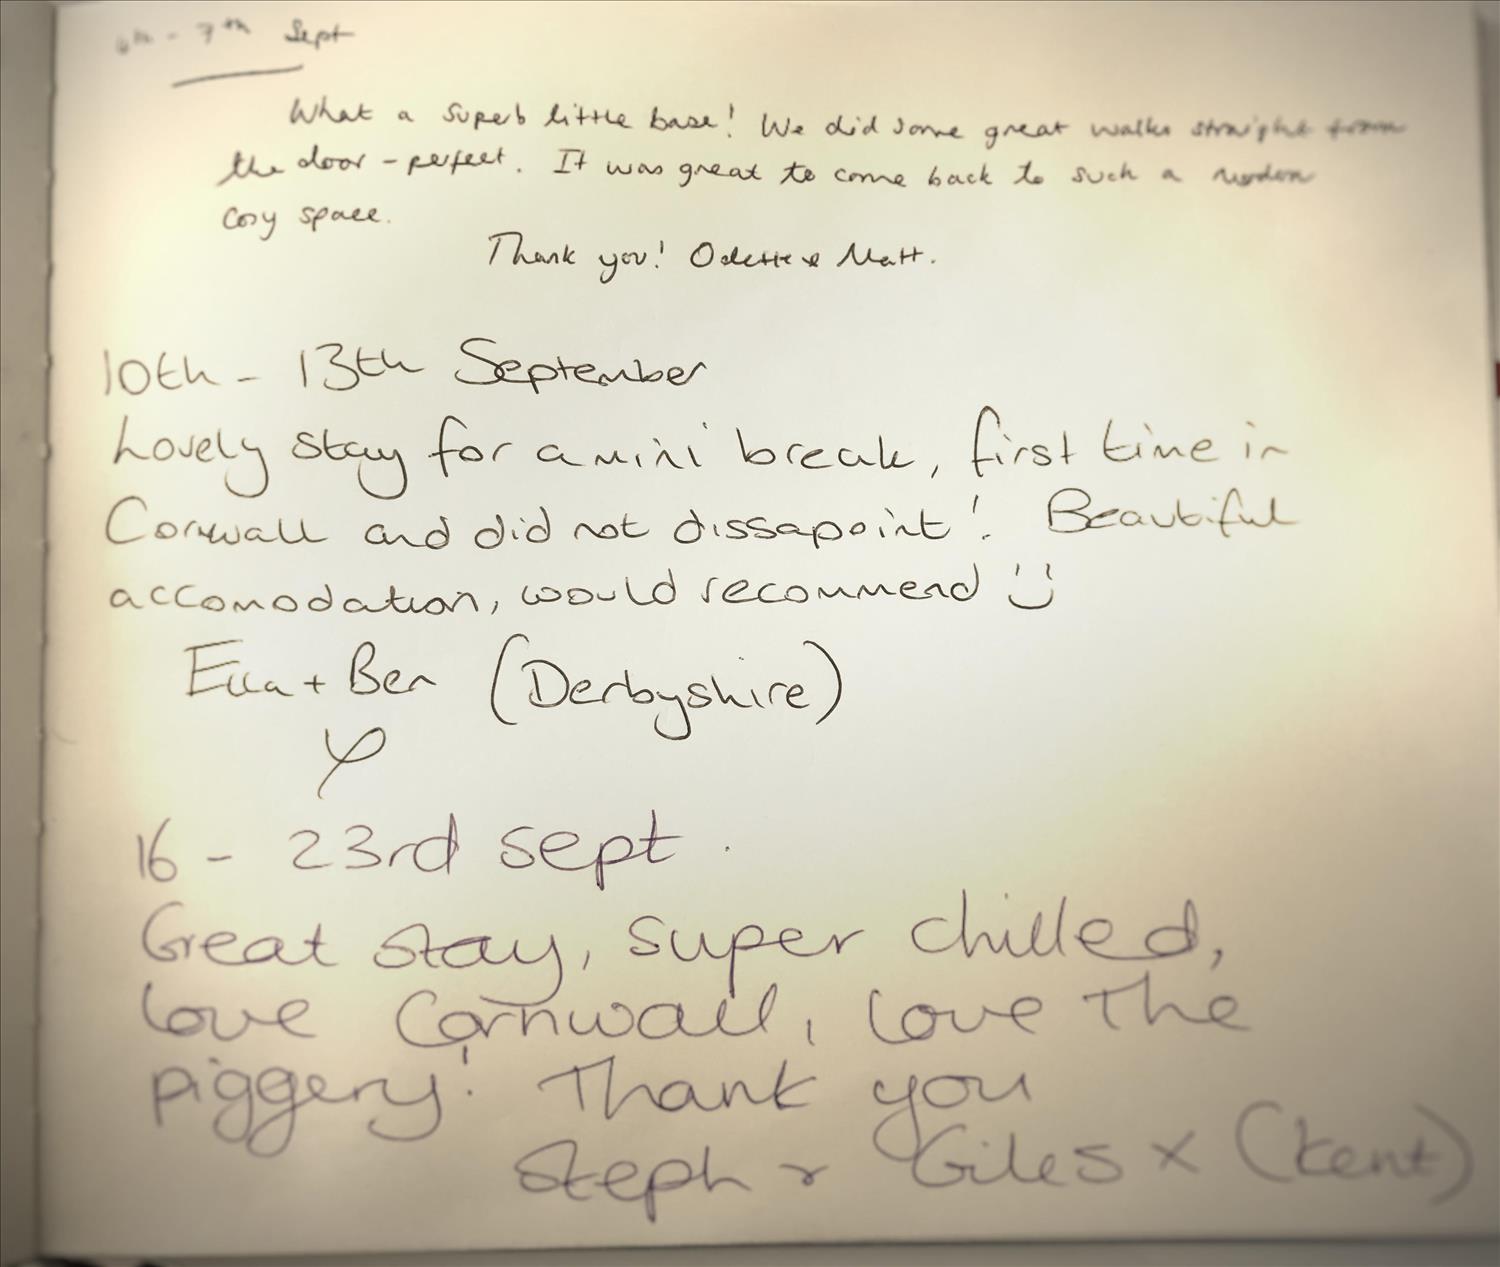 - 7th Sept
What a superb little base! We did some great walks straight from
the door - perfect. It was great to come back to such a modern
cosy space.
Thank you! Odette & Matt.
10th - 13th September
Lovely stay for a mini break, first time in
Cornwall and did not dissapoint! Beautiful
accomodation, would recommend :)
+ Ben (Derbyshire)
16 - 23rd sept.
Great stay, super chilled,
love Cornwall, love The
piggery! Thank you
Steph & Giles x (Kent)